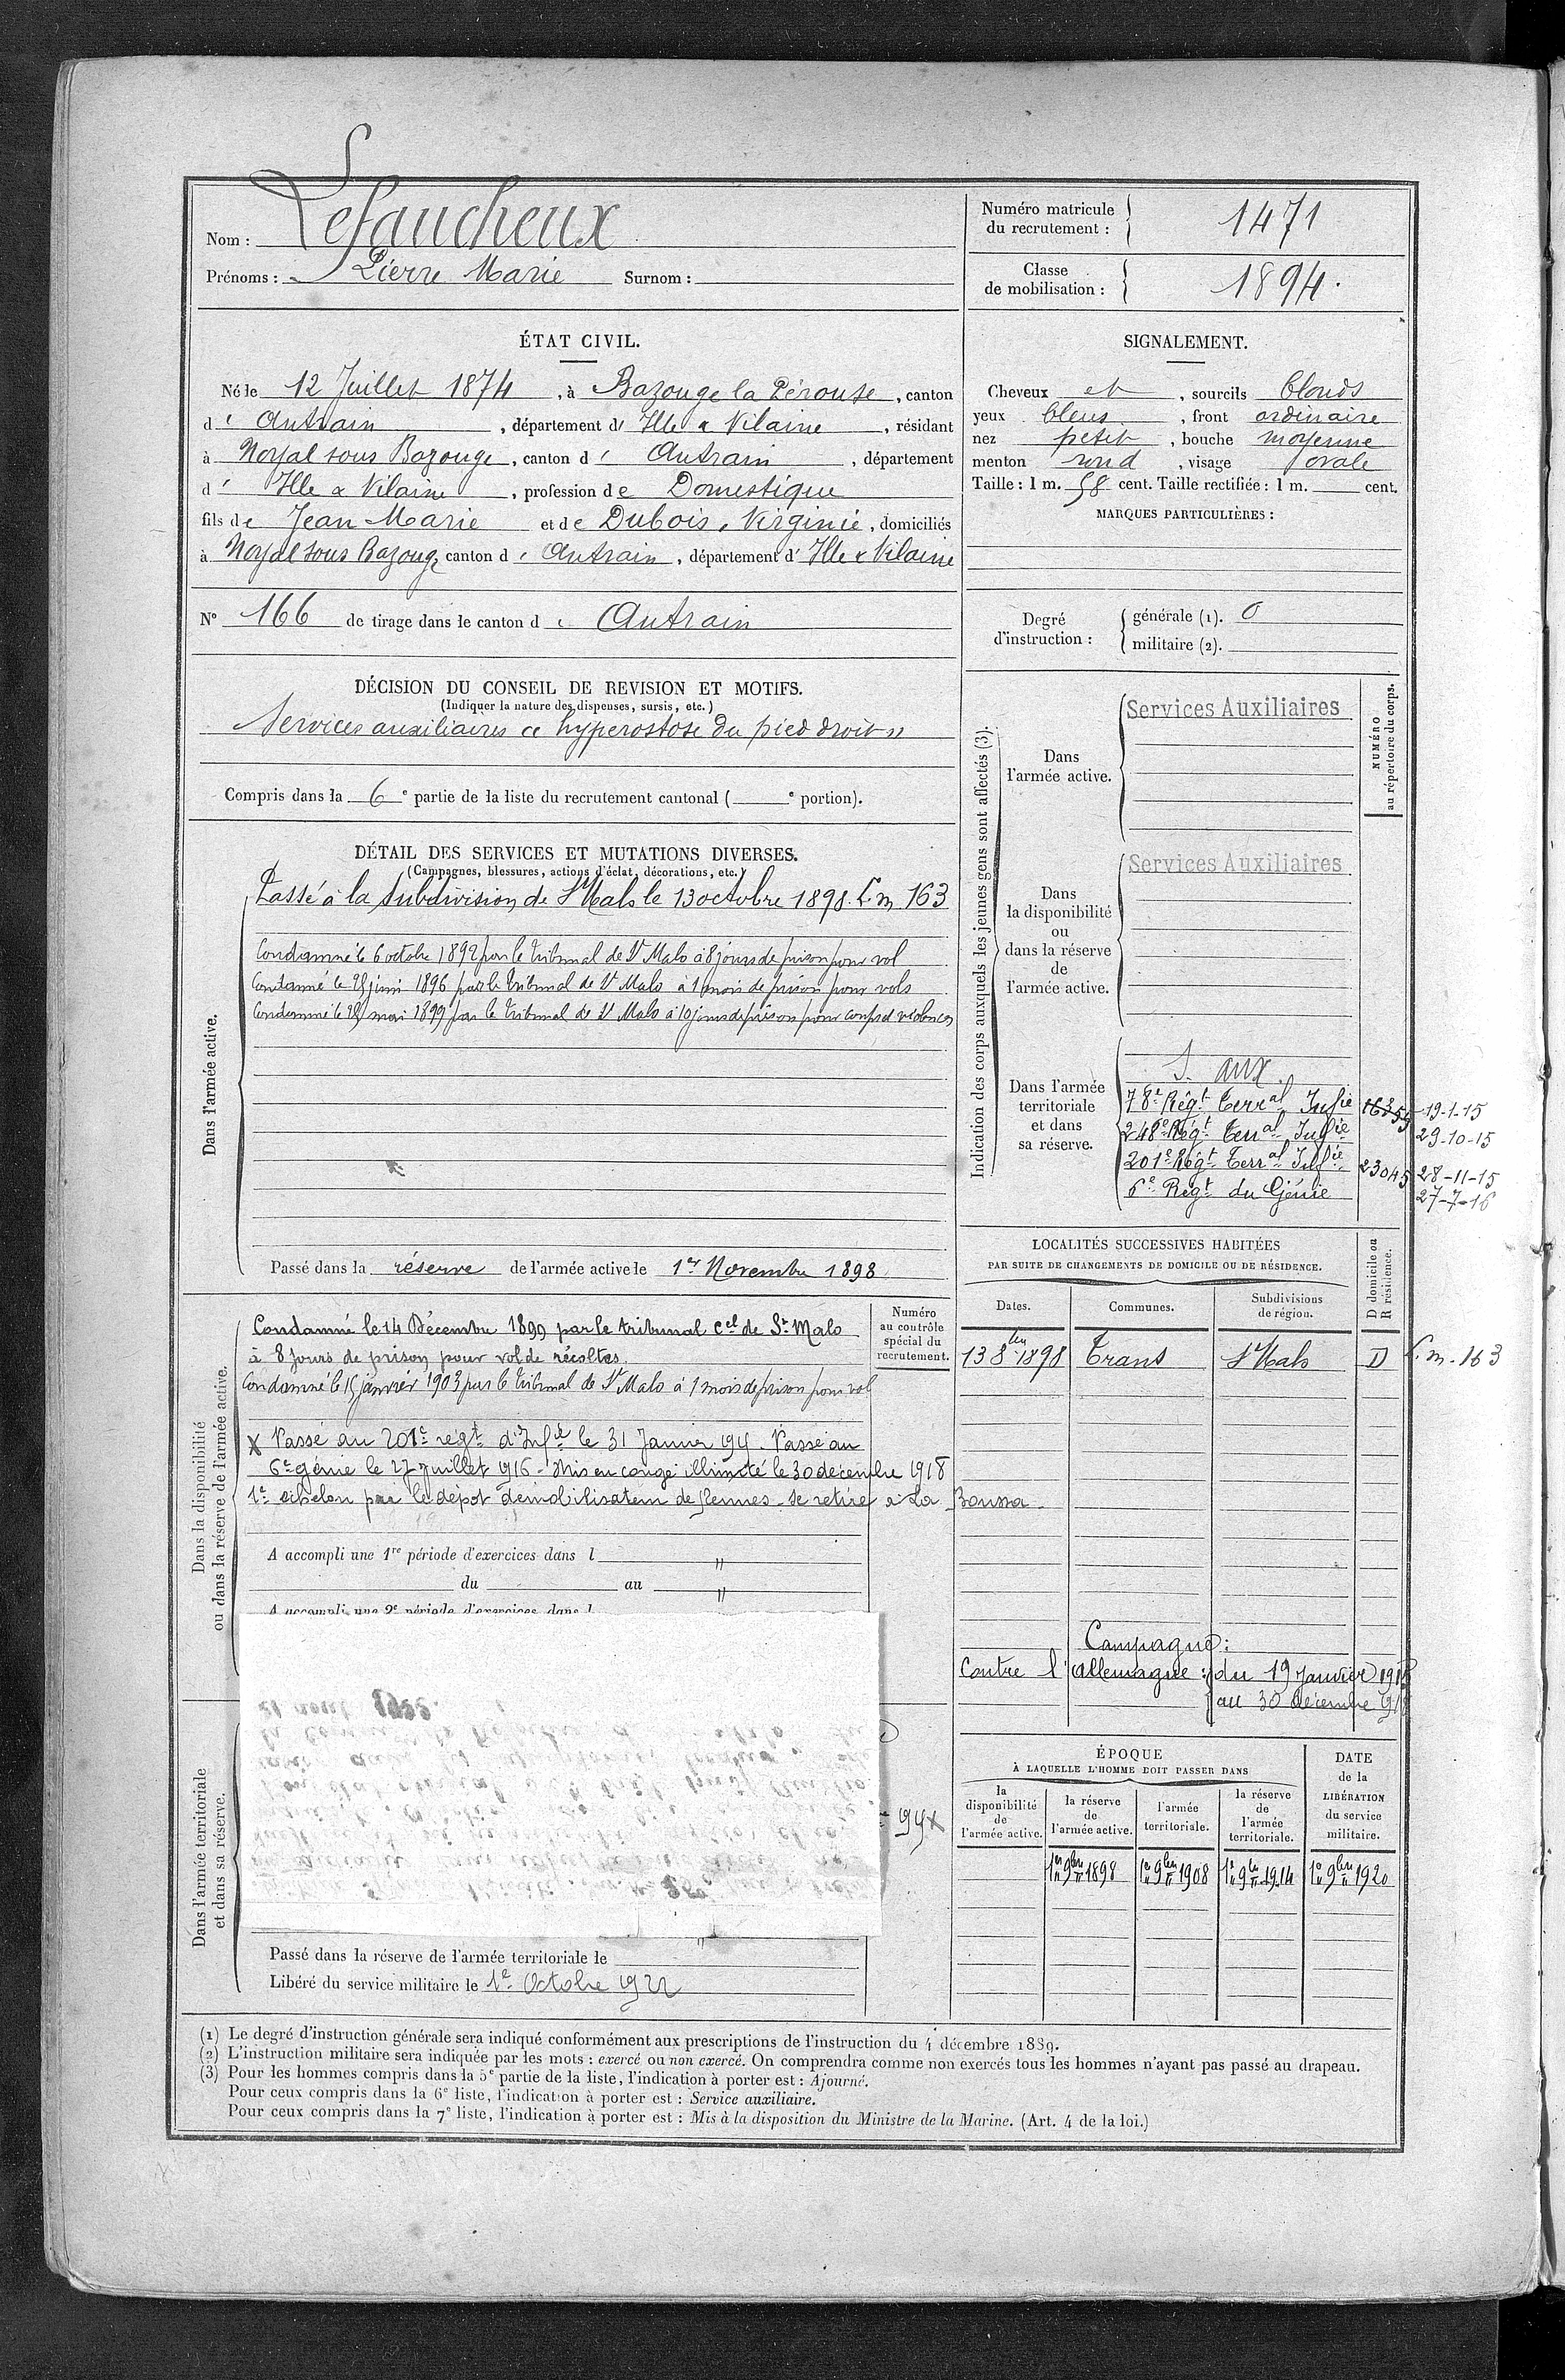 Nom : Lefaucheux
Prénoms : Pierre Marie Surnom :
Numéro matricule du recrutement : 1471
Classe de mobilisation : 1894.
ÉTAT CIVIL.
Né le 12 Juillet 1874, à Bazouge la Pérouse, canton
d' Antrain, département d' Ille & Vilaine, résidant
à Noyal sous Bazouge, canton d' Antrain, département
d' Ille & Vilaine, profession de Domestique
fils de Jean Marie et de Dubois, Virginie, domiciliés
à Noyal sous Bazoug, canton d' Antrain, département d' Ille & Vilaine
N° 166 de tirage dans le canton d' Antrain
SIGNALEMENT.
Cheveux et, sourcils blonds
yeux bleus, front ordinaire
nez petit, bouche moyenne
menton rond, visage ovale
Taille : 1 m. 58 cent. Taille rectifiée : 1 m. cent.
MARQUES PARTICULIÈRES :
Degré d'instruction : générale (1). 0
militaire (2).
DÉCISION DU CONSEIL DE REVISION ET MOTIFS.
(Indiquer la nature des dispenses, sursis, etc.)
Services auxiliaires « hyperostose du pied droit »
Compris dans la 6e partie de la liste du recrutement cantonal ( e portion).
DÉTAIL DES SERVICES ET MUTATIONS DIVERSES.
(Campagnes, blessures, actions d'éclat, décorations, etc.)
Dans l'armée active.
Passé à la subdivision de St Malo le 13 octobre 1898. L. m. 163
Condamné le 6 octobre 1892 par le tribunal de St Malo à 8 jours de prison pour vol
Condamné le 25 juin 1896 par le tribunal de St Malo à 1 mois de prison pour vols
Condamné le mai 1899 par le tribunal de St Malo à 10 jours de prison pour coups et violences
Passé dans la réserve de l'armée active le 1er Novembre 1898
Indication des corps auxquels les jeunes gens sont affectés (3).
NUMÉRO au répertoire du corps.
Dans l'armée active.
Services Auxiliaires
Dans la disponibilité ou dans la réserve de l'armée active.
Services Auxiliaires
Dans l'armée territoriale et dans sa réserve.
S. aux.
78e Régt Terral Infie 16359 19-1-15
248e Régt Terral Infie 29-10-15
201e Régt Terral Infie 23045 28-11-15
6e Régt du Génie 27-7-16
LOCALITÉS SUCCESSIVES HABITÉES
PAR SUITE DE CHANGEMENTS DE DOMICILE OU DE RÉSIDENCE.
Dates. Communes. Subdivisions de région. D domicile ou R résidence.
13 8bre 1898 Trans St Malo D L. m. 163
Campagne :
Contre l'Allemagne : du 19 Janvier 1915
au 30 décembre 1918
Dans la disponibilité ou dans la réserve de l'armée active.
Numéro au contrôle spécial du recrutement.
Condamné le 14 Décembre 1899 par le tribunal cel de St Malo
à 8 jours de prison pour vol de récoltes.
Condamné le 15 janvier 1903 par le tribunal de St Malo à 1 mois de prison pour vol
X Passé au 201e régt d'Infie le 31 Janvier 191. Passé au
6e génie le 27 juillet 1916 - Mis en congé illimité le 30 decembre 1918
1e echelon par le dépot démobilisateur de Rennes - se retire à La Boussa
A accompli une 1re période d'exercices dans l "
du au "
A accompli une 2e période d'exercices dans l
21 1922.
Dans l'armée territoriale et dans sa réserve.
Passé dans la réserve de l'armée territoriale le "
Libéré du service militaire le 1e Octobre 1922
ÉPOQUE
À LAQUELLE L'HOMME DOIT PASSER DANS
la disponibilité de l'armée active.
la réserve de l'armée active.
l'armée territoriale.
la réserve de l'armée territoriale.
DATE de la LIBÉRATION du service militaire.
1er 9bre 1898 1er 9bre 1908 1er 9bre 1914 1er 9bre 1920
(1) Le degré d'instruction générale sera indiqué conformément aux prescriptions de l'instruction du 4 décembre 1889.
(2) L'instruction militaire sera indiquée par les mots : exercé ou non exercé. On comprendra comme non exercés tous les hommes n'ayant pas passé au drapeau.
(3) Pour les hommes compris dans la 5e partie de la liste, l'indication à porter est : Ajourné.
Pour ceux compris dans la 6e liste, l'indication à porter est : Service auxiliaire.
Pour ceux compris dans la 7e liste, l'indication à porter est : Mis à la disposition du Ministre de la Marine. (Art. 4 de la loi.)